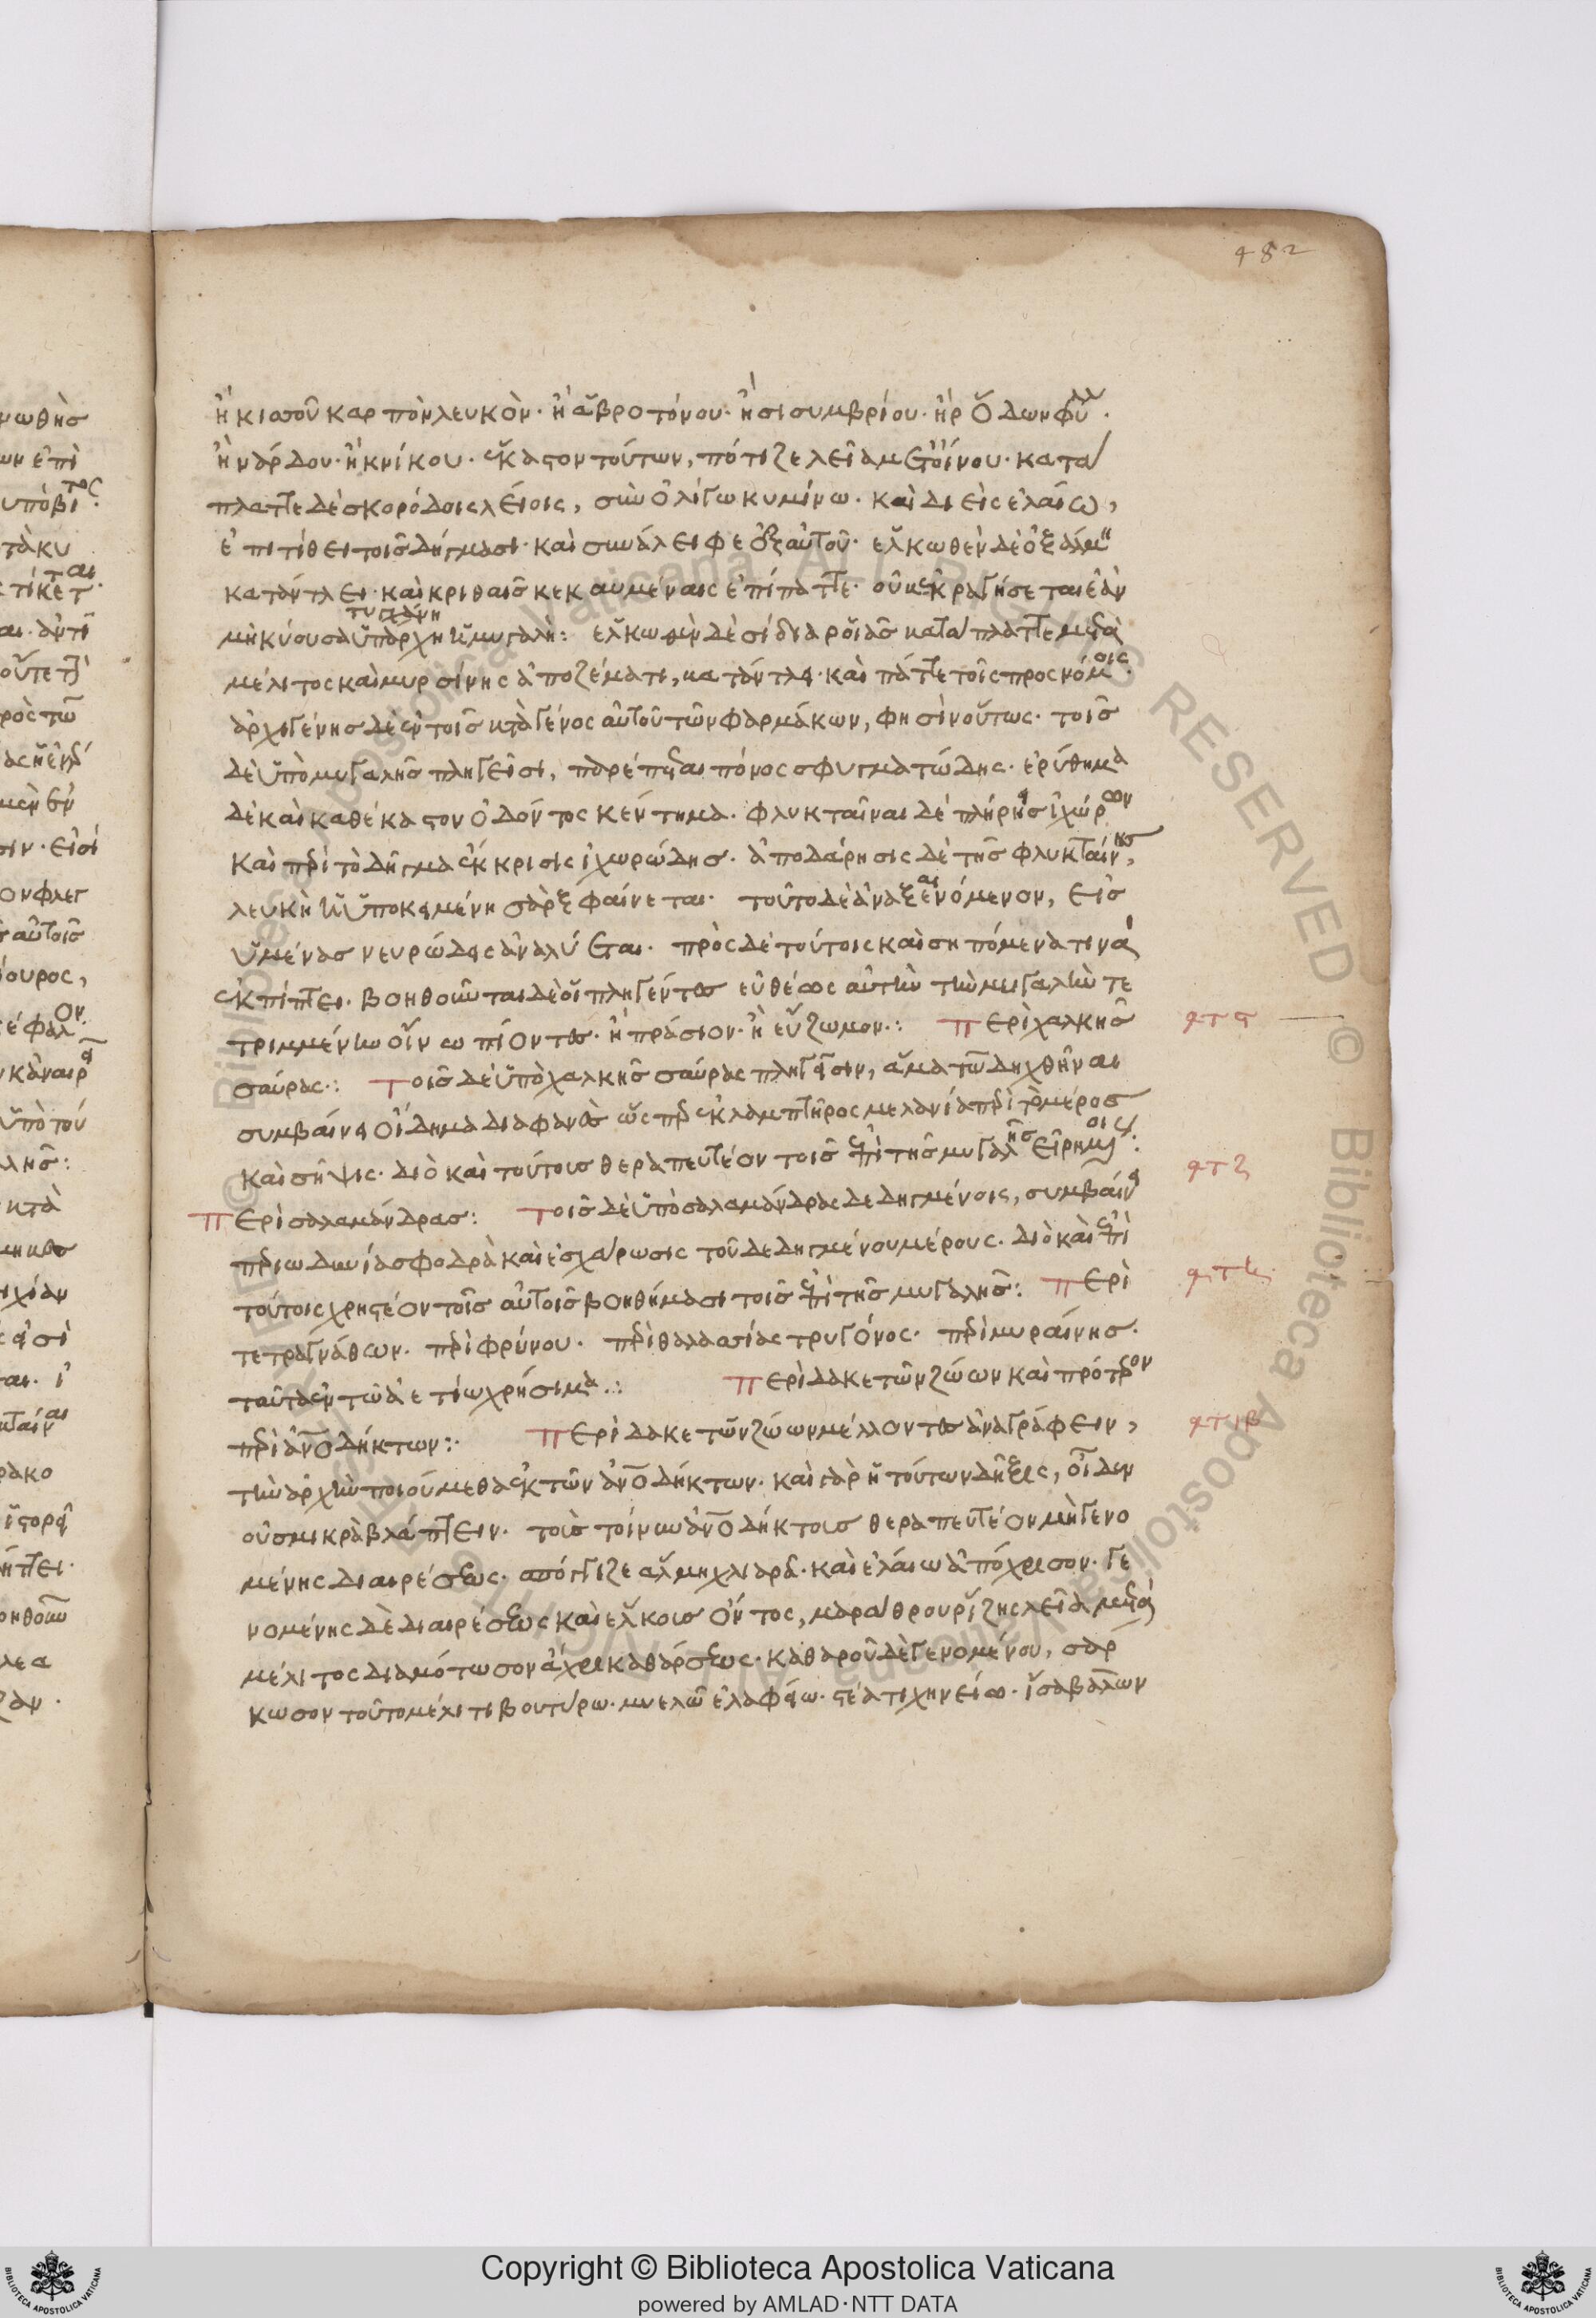 482
ἢ κισσοῦ καρπὸν λευκὸν· ἢ ἀβροτόνου· ἢ σισυμβρίου· ἢ ῥόδων φύλλ·
ἢ νάρδου· ἢ κνίκου· ἕκαστον τούτων, πότιζε λεῖα μετ οἴνου· κατά
πλαττε δὲ σκορόδοις λείοις, σὺν ὀλίγω κυμίνω· καὶ διεὶς ἐλαίω,
ἐπιτίθει τοῖς δήγμασι· καὶ συνάλειφε ἐξ αὐτοῦ· ἑλκωθὲν δὲ ὀξάλμη
κατάντλει· καὶ κριθαῖς κεκαυμέναις ἐπίπαττε· οὐκ ἐκραγήσεται ἐὰν
τυγχάνη
μὴ κύουσα ὑπάρχη ἡ μυγαλῆ: ἑλκωθὲν δὲ σίδια ῥοιᾶς κατάπλαττε μετὰ
μέλιτος καὶ μυρσίνης ἀποζέματι, κατάντλει· καὶ πάττε τοῖς προς νόμοις·
ἀρχιγένης δὲ ἐν τοῖς κατὰ γένος αὐτοῦ τῶν φαρμάκων, φησὶν οὕτως· τοῖς
δὲ ὑπὸ μυγαλῆς πληγεῖσι, παρέπεται πόνος σφυγματώδης· ἐρύθημα
δὲ καὶ καθέκαστον ὀδόντος κέντημα· φλυκταῖναι δὲ πλήρεις ἰχώρων
καὶ περὶ τὸ δῆγμα ἔκκρισις ἰχωρώδης· ἀποδάρησις δὲ τῆς φλυκταίνης,
λευκὴ ἡ ὑποκειμένη σὰρξ φαίνεται· τοῦτο δὲ ἀναξαινόμενον, εἰς
ὑμένας νευρώδεις ἀναλύεται· πρὸς δὲ τούτοις καὶ σηπόμενα τινὰ
ἐκπίπτει· βοηθοῦνται δὲ οἱ πληγέντες εὐθέως αὐτὴν τὴν μυγαλὴν τε
τριμμένην οἴνω πίοντες· ἢ πράσιον· ἢ εὔζωμον.: Περὶ χαλκῆς
σαύρας.: Τοῖς δὲ ὑπὸ χαλκῆς σαύρας πληγεῖσιν, ἅμα τῶ δηχθῆναι
συμβαίνει οἴδημα διαφανὲς ὥσπερ ἐκ λαμπτῆρος μελανία περὶ τὸ μέρος
καὶ σῆψις· διὸ καὶ τούτους θεραπευτέον τοῖς ἐπὶ τῆς μυγαλῆς εἰρημένοις·
Περὶ σαλαμάνδρας: Τοῖς δὲ ὑπὸ σαλαμάνδρας δεδηγμένοις, συμβαίνει
περιωδυνία σφοδρὰ καὶ ἐσχάρωσις τοῦ δεδηγμένου μέρους· διὸ καὶ ἐπὶ
τούτοις χρηστέον τοῖς αὐτοῖς βοηθήμασι τοῖς ἐπὶ τῆς μυγαλῆς: Περὶ
τετραγνάθων· περὶ φρύνου· περὶ θαλασσίας τρυγόνος· περὶ μυραίνης·
ταῦτα ἐν τῶ ἀετίω χρήσιμα.: Περὶ δακετῶν ζώων καὶ πρότερον
περὶ ἀνοδήκτων:· Περὶ δακετῶν ζώων μέλλοντες ἀναγράφειν,
τὴν ἀρχὴν ποιούμεθα ἐκ τῶν ἀνοδήκτων· καὶ γὰρ ἡ τούτων δῆξις, οἶδεν
οὐ σμικρὰ βλάπτειν· τοὺς τοίνυν ἀνοδήκτους θεραπευτέον μὴ γενο
μένης διαιρέσεως· σπόγγιζε ἅλμη χλιαρᾶ· καὶ ἐλαίω ἀπόχρισον· γε
νομένης δὲ διαιρέσεως καὶ ἕλκους ὄντος, μαράθρου ῥίζης λεία μετὰ
μέλιτος διαμότωσον ἄχρι καθάρσεως· καθαροῦ δὲ γενομένου, σάρ
κωσον τοῦτο μέλιτι βουτύρω· μυελῶ ἐλαφείω· στέατι χηνείω· ἴσα βαλὼν
Copyright © Biblioteca Apostolica Vaticana
powered by AMLAD·NTT DATA